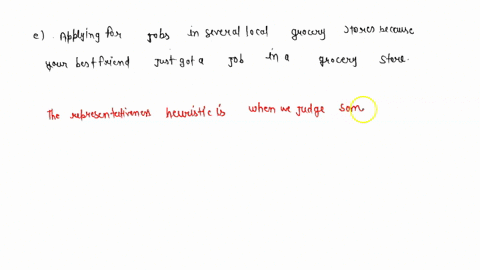 e) . Applying for jobs in several local grocery stores because
your best friend just got a job in a grocery store.
The representativeness heuristic is when we judge som